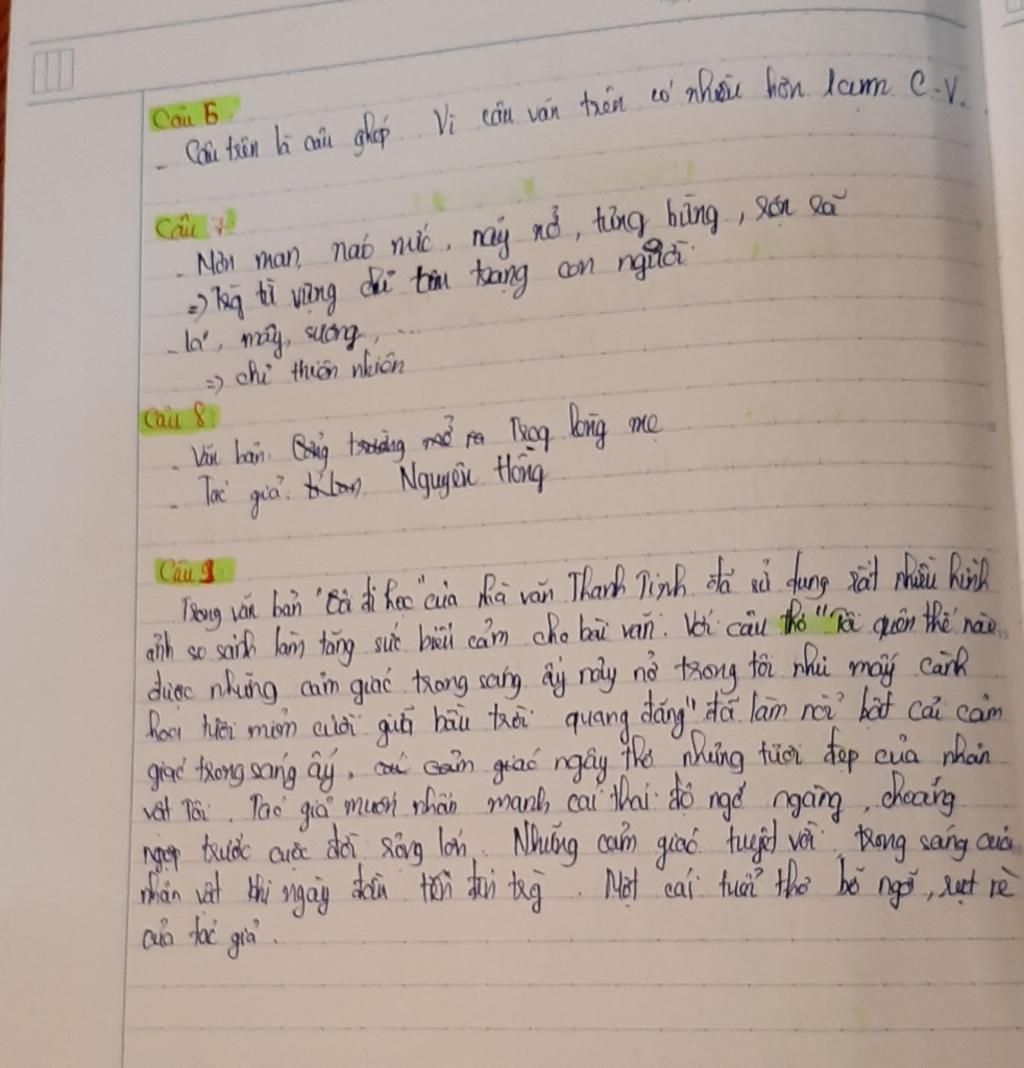 Câu 6
- Câu trên là câu ghép. Vì câu văn trên có nhiều hơn 1 cụm C-V.
Câu 7
- Mơn man, náo nức, nảy nở, tưng bừng, rộn rã
=> từ vựng chỉ tâm trạng con người
- lá, mây, sương, ...
=> chỉ thiên nhiên
Câu 8:
- Văn bản. Cổng trường mở ra Trog lòng mẹ
- Tác giả. Nguyên Hồng
Câu 9
Trong văn bản "Tôi đi học" của nhà văn Thanh Tịnh đã sử dụng rất nhiều hình
ảnh so sánh làm tăng sức biểu cảm cho bài văn. Với câu thơ "Tôi quên thế nào
được những cảm giác trong sáng ấy nảy nở trong tôi như mấy cành
hoa tươi mỉm cười giữa bầu trời quang đãng" đã làm nổi bật cái cảm
giác trong sáng ấy, cái cảm giác ngây thơ nhưng tươi đẹp của nhân
vật Tôi. Tác giả muốn nhấn mạnh cái thái độ ngỡ ngàng, choáng
ngợp trước cuộc đời rộng lớn. Những cảm giác tuyệt vời, trong sáng của
nhân vật khi ngày đầu tiên tới trg. Một cái tuổi thơ bỡ ngỡ, rụt rè
của tác giả.